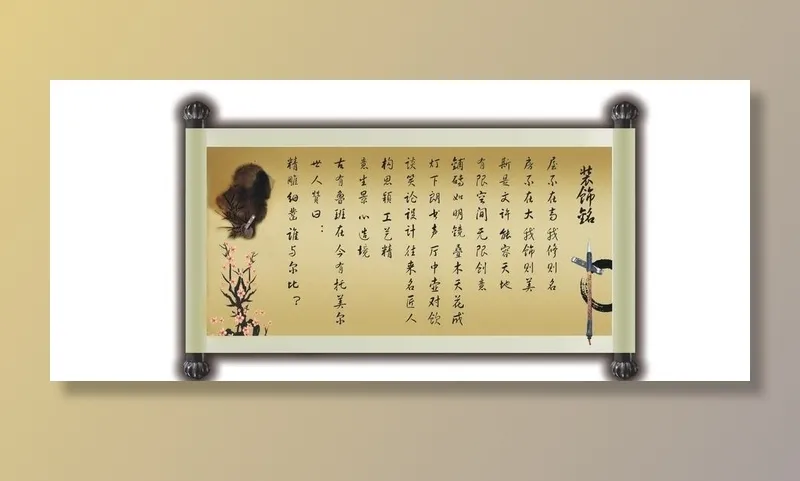 装饰铭
屋不在高我修则名
房不在大我饰则美
斯是文许能容天地
有限空间无限创意
铺砖如明镜叠木天花成
灯下朗书声厅中壶对饮
谈笑论设计往来名匠人
构思颖工艺精
意生景心造境
古有鲁班在今有托美尔
世人赞曰：
精雕细凿谁与尔比？